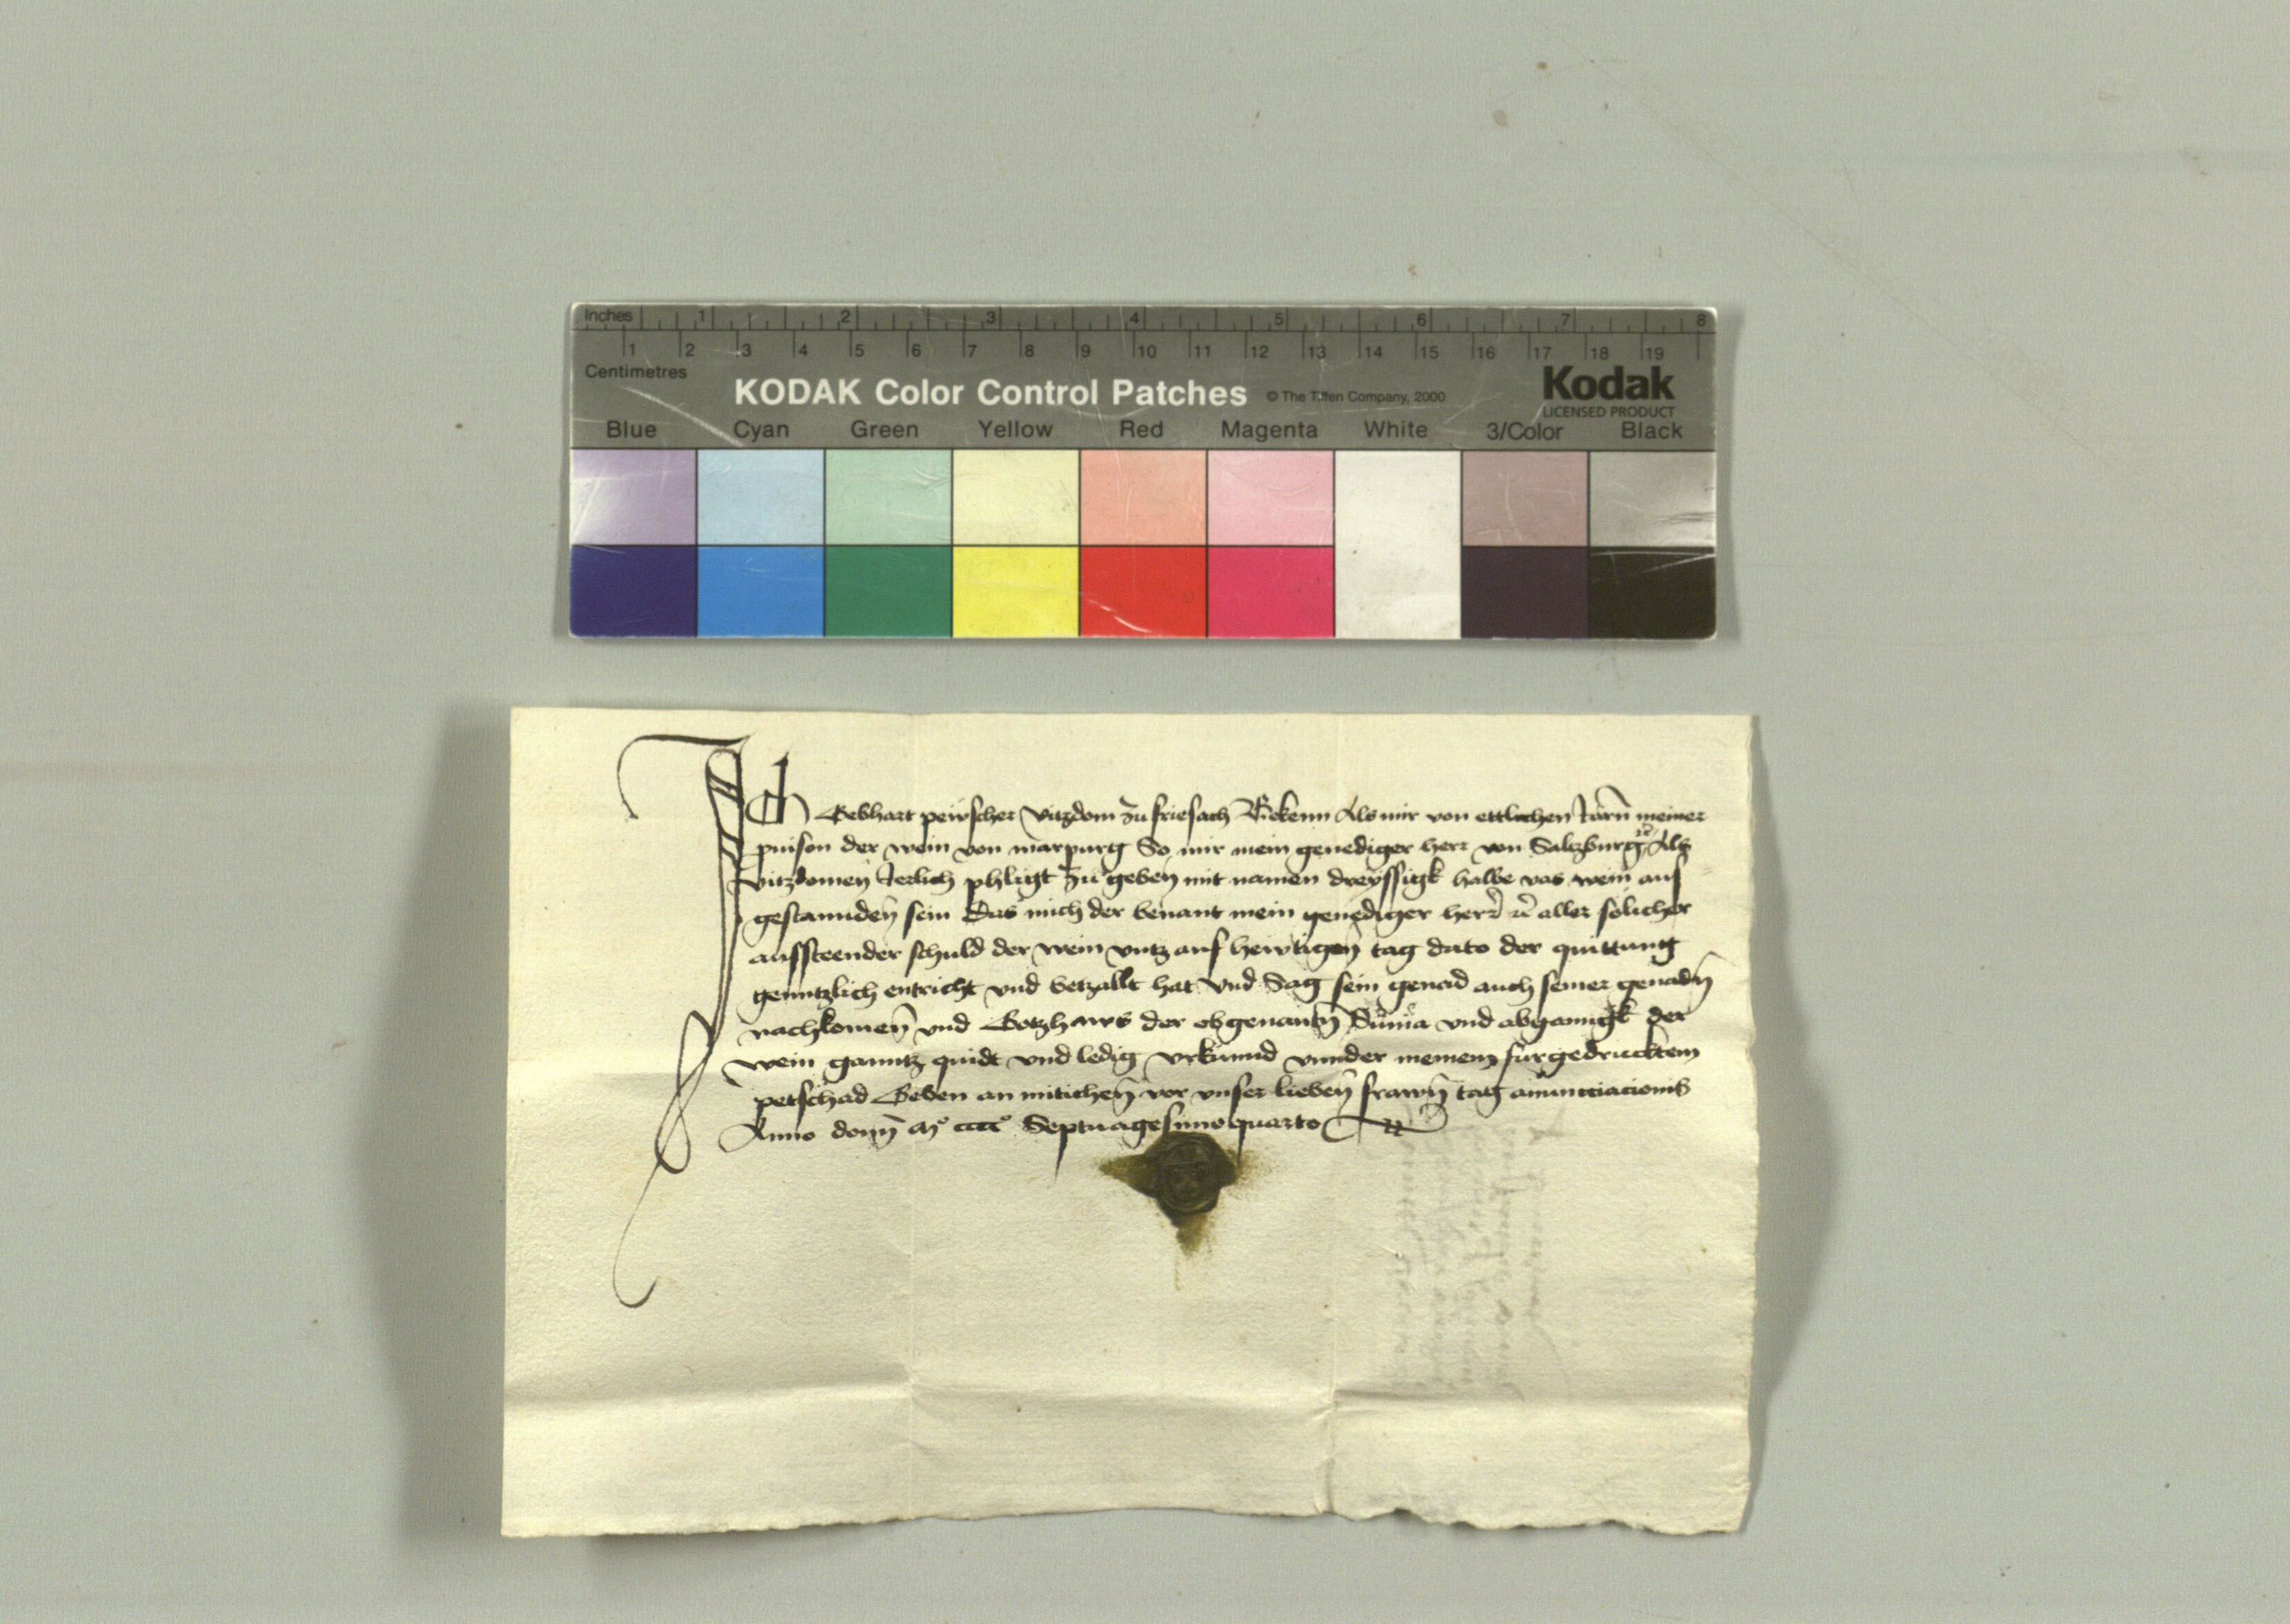 Inches 1 2 3 4 5 6 7 8
1 2 3 4 5 6 7 8 9 10 11 12 13 14 15 16 17 18 19
Centimetres
KODAK Color Control Patches © The Tiffen Company, 2000 Kodak
LICENSED PRODUCT
Blue Cyan Green Yellow Red Magenta White 3/Color Black
Ich Gebhart peuscher Vitzdom zu friesach Bekenn Als mir von ettlichen Jarn meiner
der wein von marpurg So mir mein genediger herr von Saltzburg rc Als
vitzdomen Jerlich phligt zu geben mit namen dreyssigk halbe vas wein aus
gestannden sein Das mich der benant mein genediger herr rc aller solicher
aussteender schuld der wein vntz auf hewtigen tag dato der quittung
genntzlich entricht vnd betzallt hat Vnd Sag sein genad auch seiner genadn
nachkomen vnd Gotzhaws der obgenantn Suma vnd abganngk der
wein ganntz quidt vnd ledig vrkunnd vnnder meinem furgedrucktem
petschad Geben an mitichen vor vnser lieben frawn tag anuncciacionis
Anno domi mo cccco Septuagesimo quarto